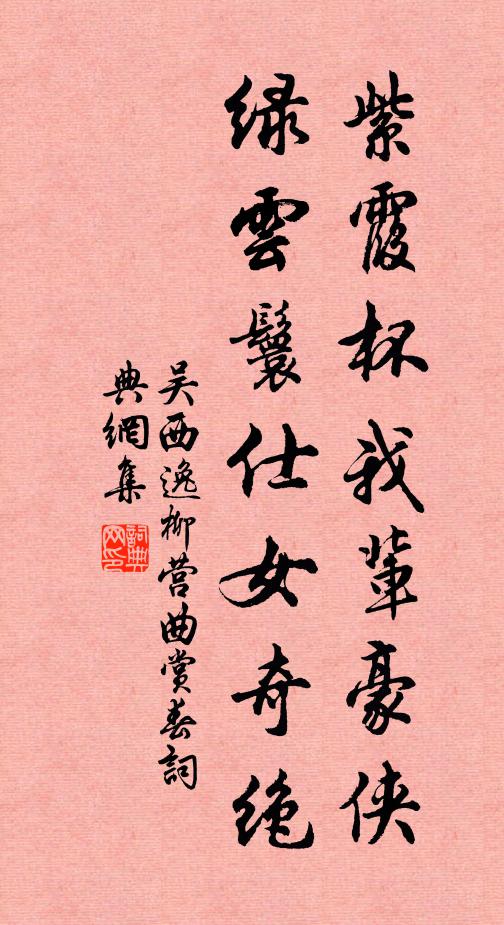 紫霞杯我輩豪侠
緑雲鬟仕女奇絶
吴西逸柳营曲赏春詞
典網集
詞典网印